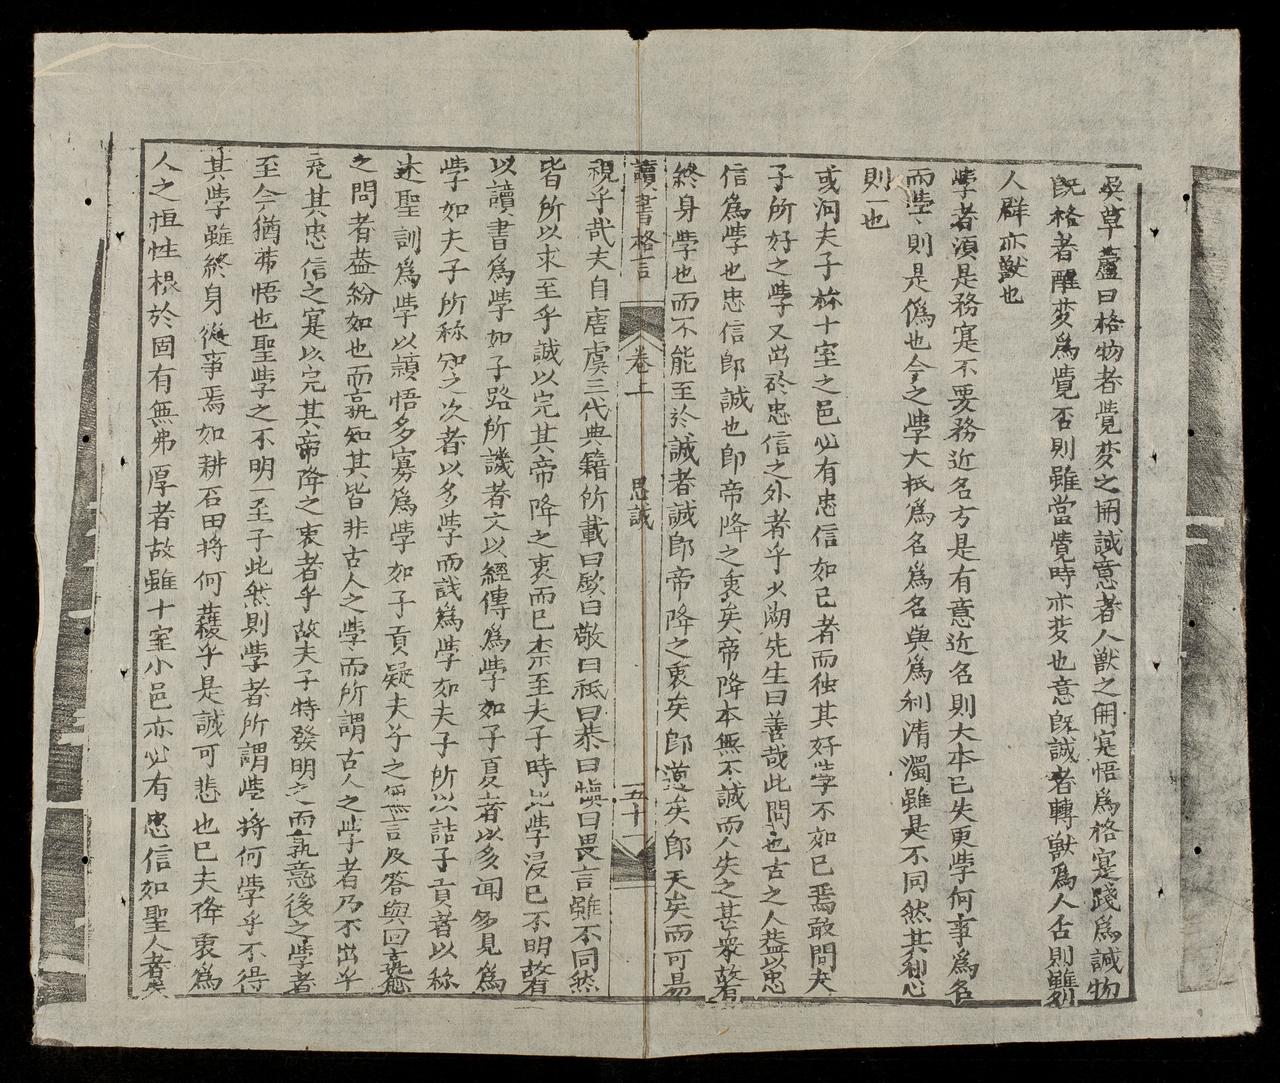 吳草廬曰格物者覺夢之開誠意者人獸之開寔悟爲格寔踐爲誠物
旣格者醒夢爲覺否則雖當覺時亦夢也意旣誠者轉獸爲人否則雖列
人群亦獸也
學者須是務寔不要務近名方是有意近名則大本已失更學何事爲名
而學、則是僞也今之學大抵爲名爲名與爲利清濁雖是不同然其利心
則一也
或問夫子称十室之邑必有忠信如己者而独其好学不如己焉敢問夫
子所好之學又出於忠信之外者乎大湖先生曰善哉此問也古之人盖以忠
信爲學也忠信卽誠也卽帝降之衷矣帝降本無不誠而人失之甚衆故有
終身學也而不能至於誠者誠卽帝降之衷矣卽道矣卽天矣而可易
讀書格言 卷二 思誠 五十一
視乎哉夫自唐虞三代典籍所載曰欽曰敬曰祗曰恭曰愼曰畏言雖不同然
皆所以求至乎誠以完其帝降之衷而已柰至夫子時此學浸已不明故有
以讀書爲學如子路所譏者文以經傳爲學如子夏者以多聞多見爲
學如夫子所称知之次者以多學而識爲學如夫子所以詰子貢者以称
述聖訓爲學以頴悟多寡爲學如子貢疑夫子之無言及答與回孰愈
之問者盖紛如也而孰知其皆非古人之學而所謂古人之學者乃不出乎
充其忠信之寔以完其帝降之衷者乎故夫子特發明之而孰意後之學者
至今猶弗悟也聖學之不明一至于此然則學者所謂學將何學乎不得
其學雖終身從事焉如耕石田将何穫乎是誠可悲也已夫降衷爲
人之恒性根於固有無弗厚者故雖十室小邑亦必有忠信如聖人者矣